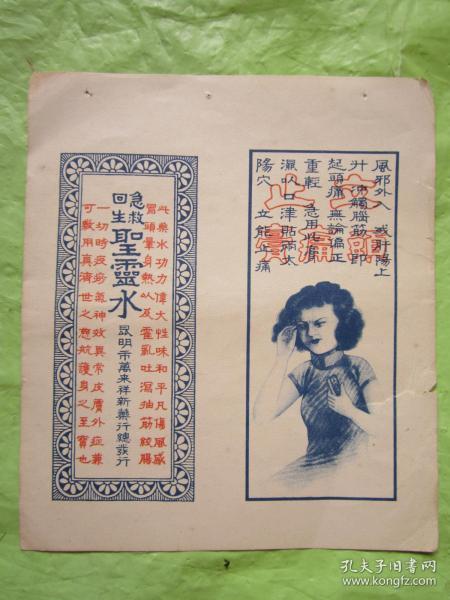 立止
頭痛膏
風邪外入 或肝陽上
升 沖觸腦筋 即
起頭痛 無論偏正
重輕 急用此膏
濕以口津貼兩太
陽穴 立能止痛
此藥水功力偉大性味和平凡傷風感
冒頭暈身熱以及霍亂吐瀉抽筋絞腸
急救
回生
聖靈水
昆明市萬來祥新藥行總發行
一切時疫痧氣神效異常皮膚外症兼
可敷用真濟世之慈航護身之至寶也
孔夫子旧书网
www.kongfz.com